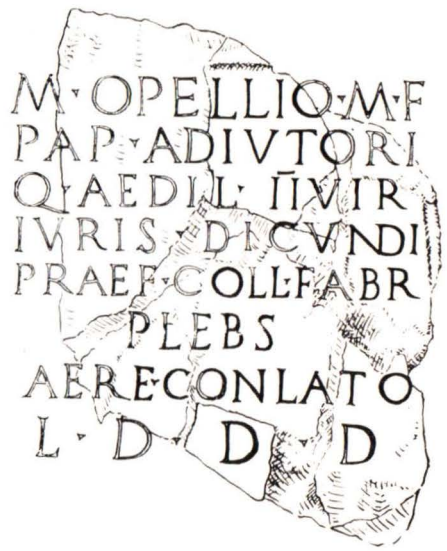 M · OPELLIO · M · F
PAP · ADIVTORI
Q · AEDIL · II̅VIR
IVRIS · DICVNDI
PRAEF · COLL · FABR
PLEBS
AERE · CONLATO
L · D · D · D